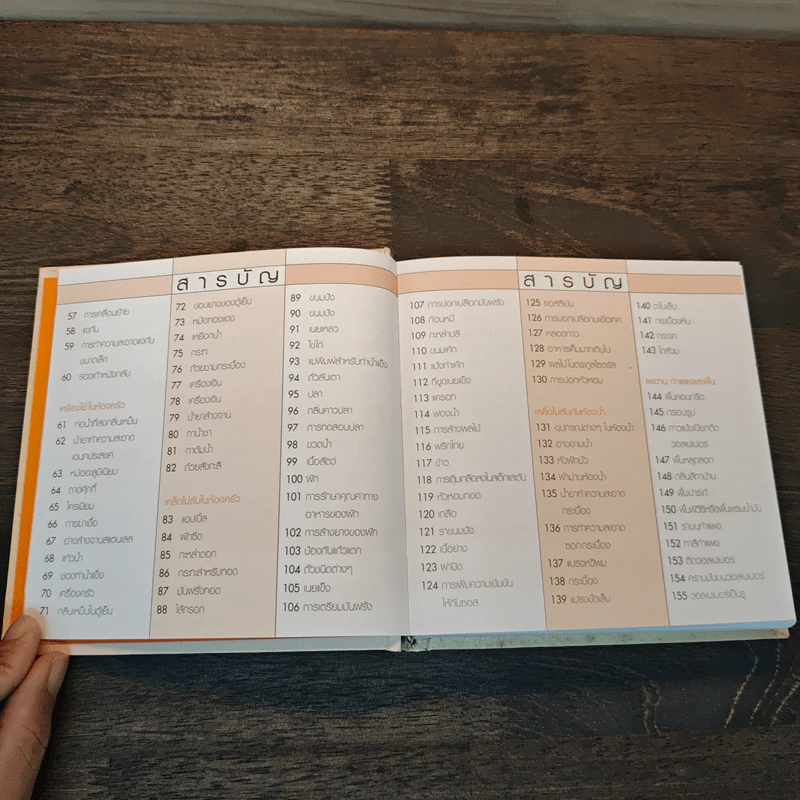 สารบัญ
57 การเคลื่อนย้าย
58 แจกัน
59 การทำความสะอาดแจกัน
ขนาดเล็ก
60 รองเท้าหนังกลับ
เครื่องใช้ในห้องครัว
61 ท่อน้ำทิ้งส่งกลิ่นเหม็น
62 น้ำยาทำความสะอาด
เอนกประสงค์
63 หม้ออะลูมิเนียม
64 ถาดคุกกี้
65 โครเมียม
66 การฆ่าเชื้อ
67 อ่างล้างจานสแตนเลส
68 แก้วน้ำ
69 ช่องทำน้ำแข็ง
70 เครื่องครัว
71 กลิ่นเหม็นในตู้เย็น
72 ขอบยางของตู้เย็น
73 หม้อทองแดง
74 เหยือกน้ำ
75 กระทะ
76 ถ้วยชามกระเบื้อง
77 เครื่องเงิน
78 เครื่องเงิน
79 น้ำยาล้างจาน
80 กาน้ำชา
81 กาต้มน้ำ
82 ถ้วยสังกะสี
เคล็ดไม่ลับในห้องครัว
83 แอปเปิ้ล
84 ผักชีด
85 กะหล่ำดอก
86 กระทะสำหรับทอด
87 มันฝรั่งทอด
88 ไส้กรอก
89 ขนมปัง
90 ขนมปัง
91 เนยเหลว
92 ไข่ไก่
93 แม่พิมพ์สำหรับทำน้ำแข็ง
94 ถั่วลันเตา
95 ปลา
96 กลิ่นคาวปลา
97 การทดสอบปลา
98 ขวดน้ำ
99 เนื้อสัตว์
100 ผัก
101 การรักษาคุณค่าทาง
อาหารของผัก
102 การล้างยางของผัก
103 ป้องกันแก้วแตก
104 ถั่วชนิดต่างๆ
105 เนยแข็ง
106 การเตรียมมันฝรั่ง
สารบัญ
107 การปอกเปลือกมันฝรั่ง
108 ก้อนหมี่
109 กะหล่ำปลี
110 ขนมเค้ก
111 แป้งทำเค้ก
112 ที่ขูดเนยแข็ง
113 แครอท
114 ฟองน้ำ
115 การล้างผลไม้
116 พริกไทย
117 ข้าว
118 การเติมเกลือลงในสเต็กและตับ
119 หัวหอมทอด
120 เกลือ
121 ราขนมปัง
122 เนื้อย่าง
123 ฝาเปิด
124 การเพิ่มความเข้มข้น
ให้กับซอส
125 ซอสสีเข้ม
126 การปอกเปลือกมะเขือเทศ
127 หลอดกาว
128 อาหารเค็มมากเกินไป
129 ผลไม้ในตระกูลไซตรัส
130 การปอกหัวหอม
เคล็ดไม่ลับกับห้องน้ำ
131 อุปกรณ์ต่างๆ ในห้องน้ำ
132 อ่างอาบน้ำ
133 หัวฝักบัว
134 ผ้าม่านห้องน้ำ
135 น้ำยาทำความสะอาด
กระเบื้อง
136 การทำความสะอาด
ซอกกระเบื้อง
137 แปรงหวีผม
138 กระเบื้อง
139 แปรงขัดเล็บ
140 ตะไบเล็บ
141 กระเบื้องหิน
142 กระจก
143 โถส้วม
เพดาน กำแพงและพื้น
144 พื้นคอนกรีต
145 กรอบรูป
146 กาวแป้งเปียกติด
วอลเปเปอร์
147 พื้นหลุดลอก
148 กลิ่นสีทาบ้าน
149 พื้นปาร์เก้
150 พื้นพีวีซีหรือพื้นพรมน้ำมัน
151 ราบนกำแพง
152 ทาสีกำแพง
153 ติดวอลเปเปอร์
154 คราบมันบนวอลเปเปอร์
155 วอลเปเปอร์เป็นรู